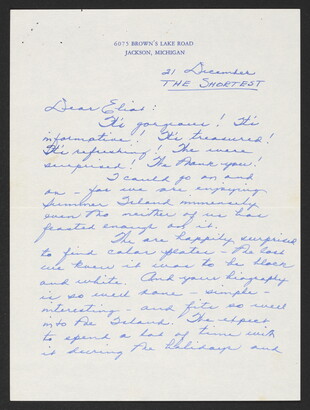 6075 BROWN'S LAKE ROAD
JACKSON, MICHIGAN
21 December
THE SHORTEST
Dear Elias:
It's gorgeous! It's
informative! It's treasured!
It's refreshing! The were
surprised! The thank you!
I could go on and
on - for we are enjoying
Summer Island immensely
even tho neither of us has
feasted enough on it.
The are happily surprised
to find color plates - the last
we knew it was to be black
and white. And your biography
is so well done - simple -
interesting - and fits so well
into the Island. The expect
to spend a lot of time with
it during the holidays and